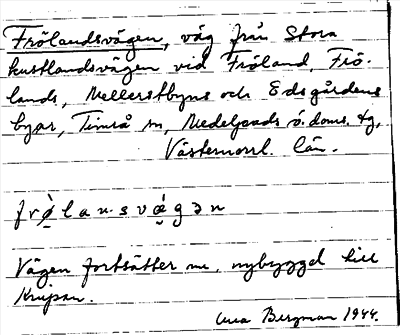 Frölandsvägen, väg från Stora
kustlandsvägen vid Fröland, Frö-
lands, Mellerstbyns och Edsgårdens
byar, Timrå sn, Medelpads ö. doms. tg,
Västernorrl. län.
frø̀lansvǿgən
Vägen fortsätter nu, nybyggd till
Krupan.
Bergman 1944.